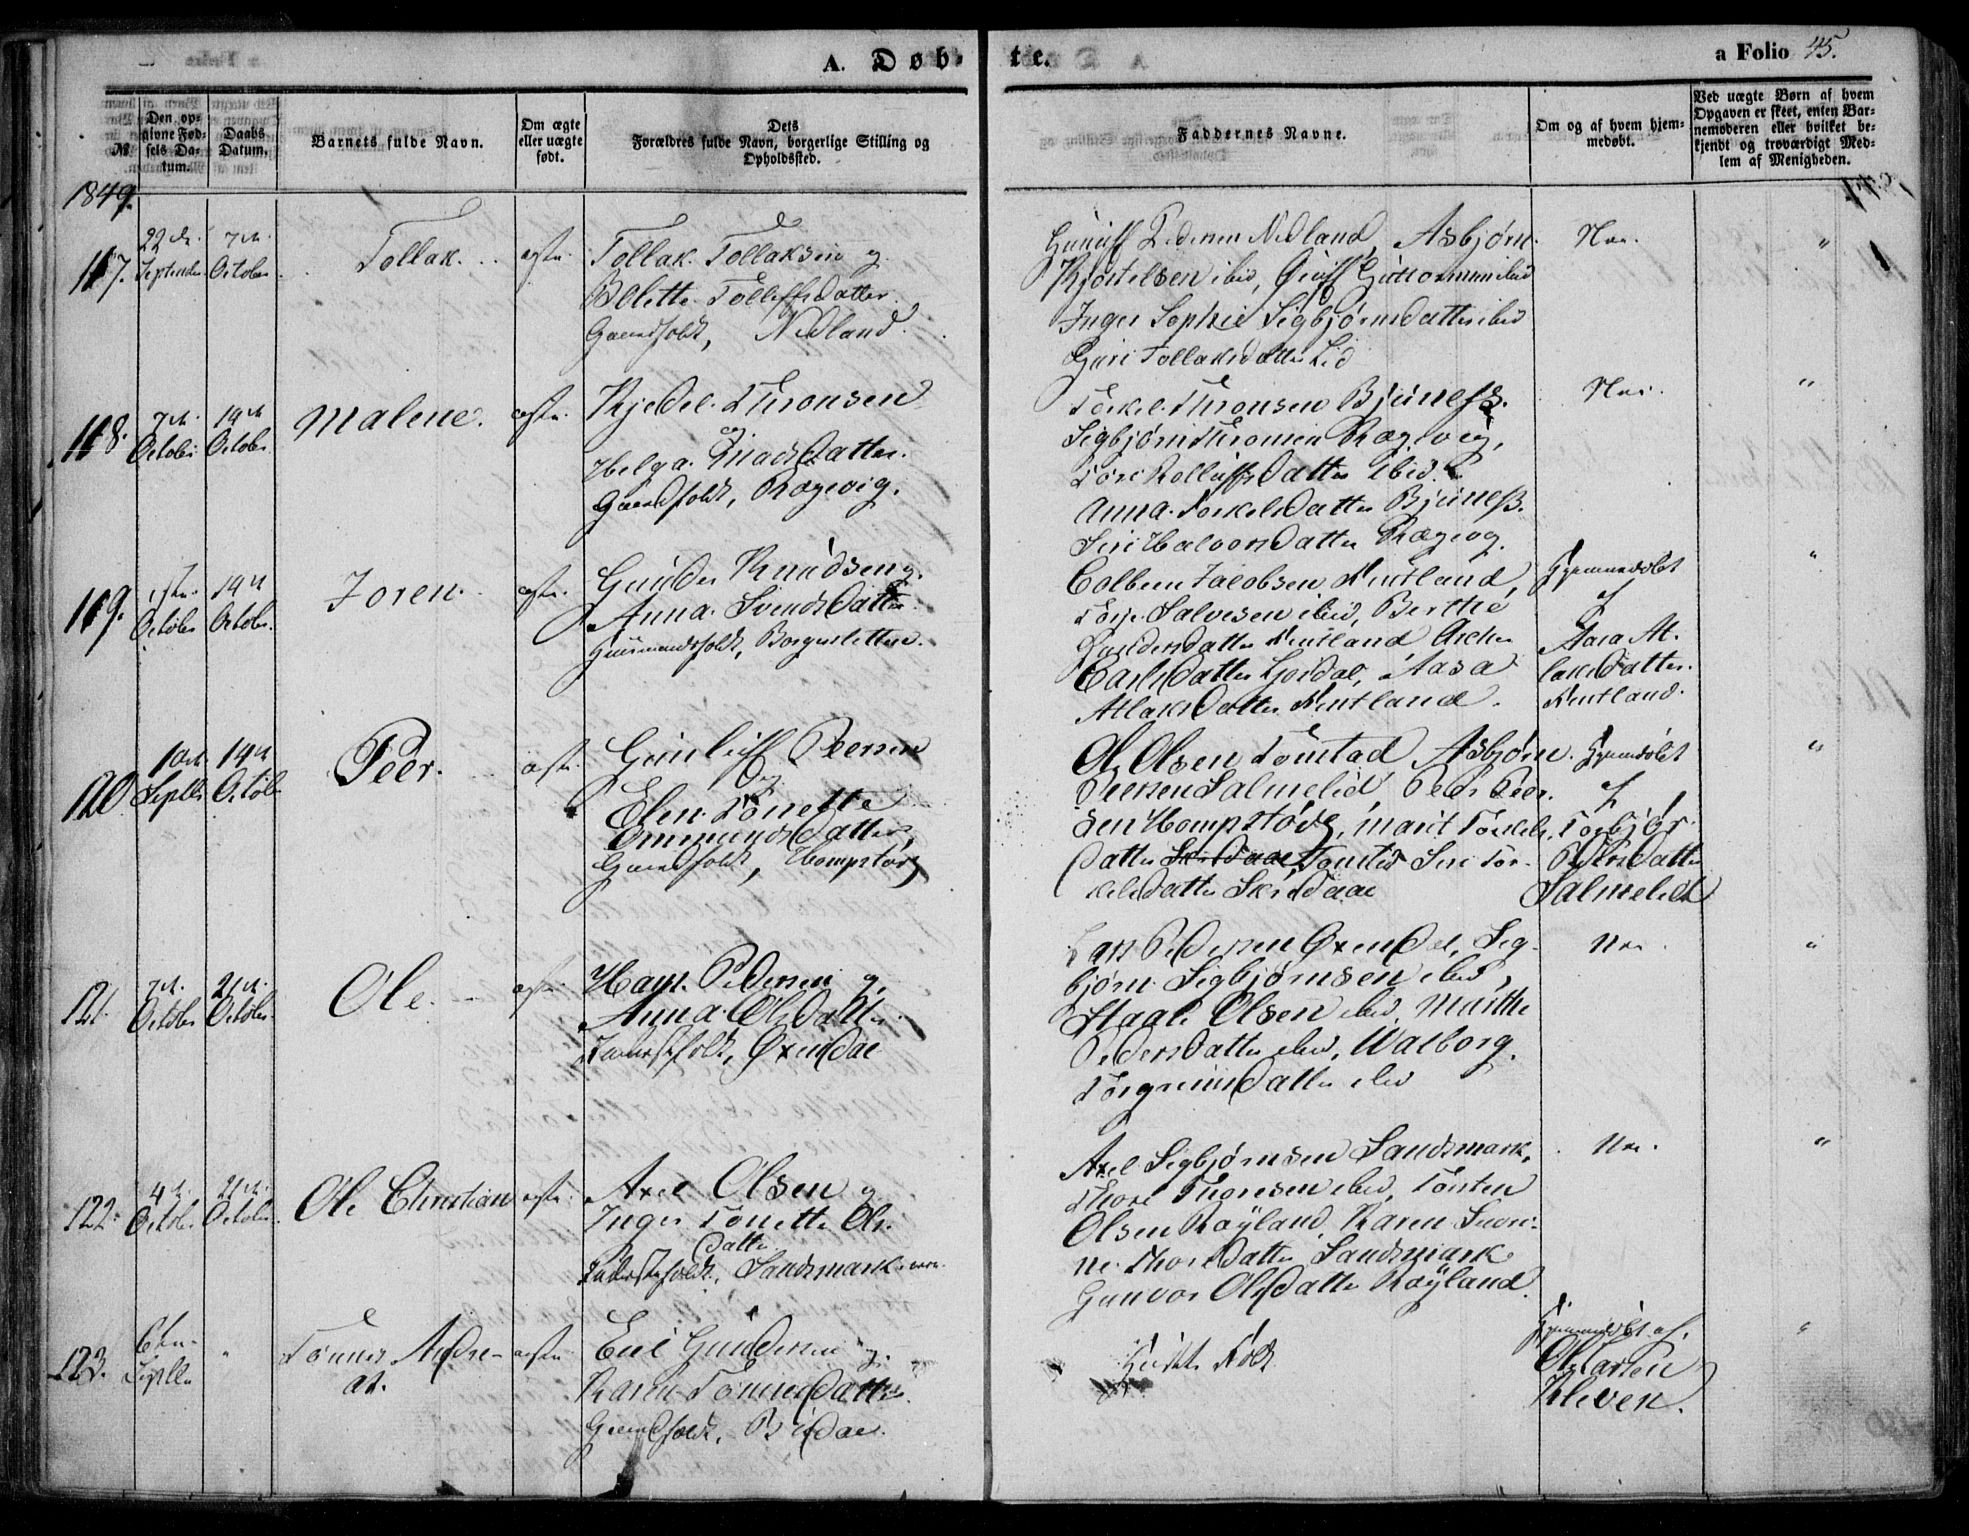 A. Døb-
te.
a Folio 45.
№
Den op-
givne Fød-
sels Da-
tum.
Daabs
Datum.
Barnets fulde Navn.
Om ægte
eller uægte
født.
Dets
Forældres fulde Navn, borgerlige Stilling og
Opholdssted.
Faddernes Navne.
Om og af hvem hjem-
medøbt.
Ved uægte Børn af hvem
Opgaven er skeet, enten Bar-
nemoderen eller hvilket be-
kjendt og troværdigt Med-
lem af Menigheden.
1849.
117.
22de
September
7de
October
Tollak.
ægte
Tollak Tollaksen og
Belette Tollefsdatter
Gaardfolk, Nedland.
Pedersen Nedland, Asbjørn
Kjøstelsen ibid,
Inger Sophie Sigbjørnsdatter ibid
Guri Tollaksdatter Lid
Nei.
"
118.
7de
October
14de
October
Malene.
ægte
Kjedel Thronsen
og
Helga datter
Gaardfolk, Rægevig.
Torkel Thronsen Bjuness.
Sigbjørn Thronsen Rægevig,
Tore Rolleffsdatter ibid.
Anna Torkelsdatter Bjuness.
Siri Halvorsdatter Rægevig.
Nei.
"
119.
1ste
October
14de
October
Joren.
ægte
Gunder Knudsen og
Anna Svendsdatter
Huusmandsfolk, Borgestetten.
Colben Jacobsen Nintland,
Torje Salvesen ibid, Berthe
Gundersdatter Nintland
Carlsdatter Hordal, Aasa
Atlaksdatter Nintland.
Hjemmedøbt
af
Aasa At-
laksdatter
Nintland.
"
120
10de
Septbr
14de
October
Peer.
ægte
Gunleiff Peersen
og
Elen Tonette
Ommundsdatter,
Gaardfolk, Hompstøe
Ole Olsen Tonstad Asbjørn
Peersen Salmelid, Peder Peer-
sen Hompstøe, Marit Torkels-
datter Skridaae, Tonstad Siri Tor-
kelsdatter Skridaae
Hjemdøbt
af
Torbjør
Pedersdatter
Salmelid
"
121.
7de
October
21de
October
Ole.
ægte
Hans Pedersen og
Anna Olsdatter
Inderstfolk, Øxendal
Lars Pedersen Øxendal, Sig-
bjørn Sigbjørnsen ibid,
Staale Olsen ibid, Marthe
Pedersdatter ibid, Walborg
Torgrimsdatter ibid
Nei
"
122.
4de
October
21de
October
Ole Christian
ægte
Axel Olsen og
Inger Tonette Ols-
datter
Inderstfolk, Sandsmark
Axel Sigbjørnsen Sandsmark,
Thore Thoresen ibid, Torsten
Olsen Røyland, Karen Seve-
ne Thoresdatter Sandsmark
Gunvor Olsdatter Røyland.
Nei.
"
123.
6te
Septbr
"
Tønnes Andre-
as.
ægte
Eril Gundersen og
Karen Tønnesdatter
Gaardfolk, Bridal.
Hjemmedøbt af
Ole Larsen
Kleven.
"